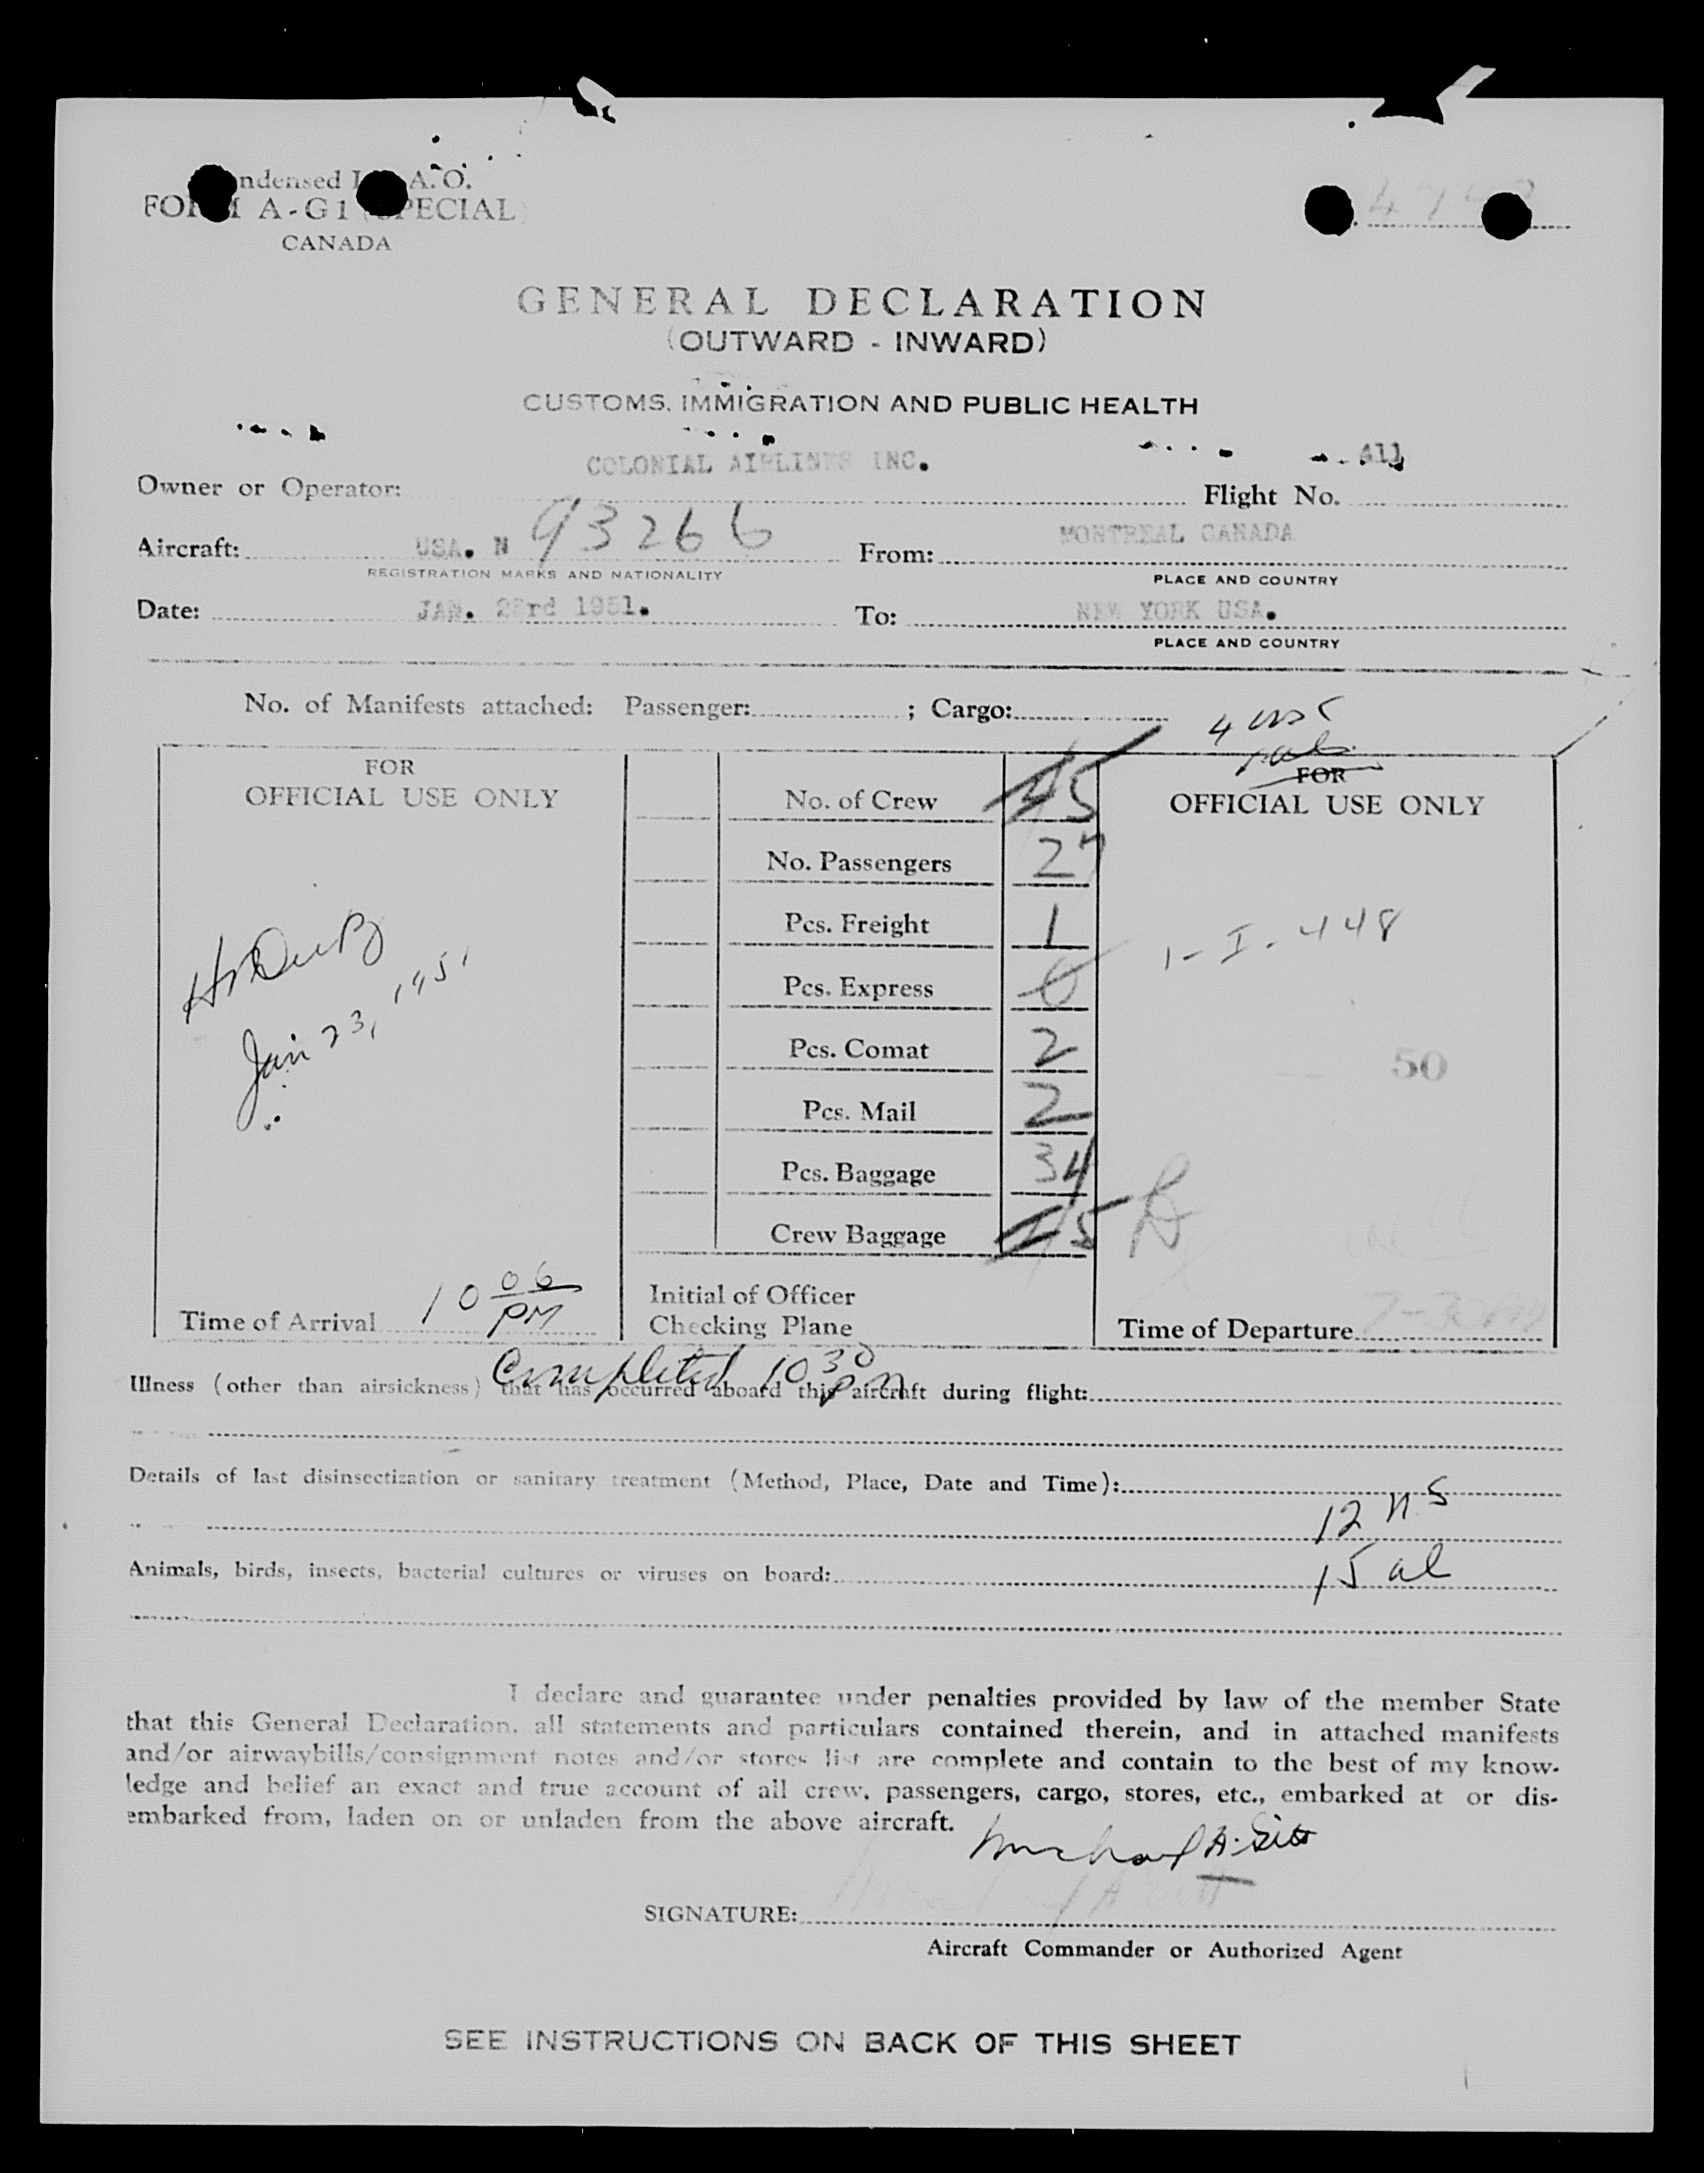 ndensed I A. O.
FORM A-G1 (SPECIAL)
CANADA
GENERAL DECLARATION
(OUTWARD - INWARD)
CUSTOMS, IMMIGRATION AND PUBLIC HEALTH
Owner or Operator: COLONIAL AIRLINES INC. Flight No. All
Aircraft: USA. N 93266 From: MONTREAL CANADA
REGISTRATION MARKS AND NATIONALITY PLACE AND COUNTRY
Date: JAN. 23rd 1951. To: NEW YORK USA.
PLACE AND COUNTRY
No. of Manifests attached: Passenger: ; Cargo:
4 usc
FOR FOR
OFFICIAL USE ONLY No. of Crew 5 OFFICIAL USE ONLY
No. Passengers 27
Pcs. Freight 1 1-I-448
Pcs. Express 0
Jan 23, 1951
Pcs. Comat 2 50
Pcs. Mail 2
Pcs. Baggage 34
Crew Baggage 5
Initial of Officer
Time of Arrival 10 06 PM Checking Plane Time of Departure
Completed 10 30 pm
Illness (other than airsickness) that has occurred aboard this aircraft during flight:
Details of last disinsectization or sanitary treatment (Method, Place, Date and Time):
12 ns
Animals, birds, insects, bacterial cultures or viruses on board: 15 al
I declare and guarantee under penalties provided by law of the member State
that this General Declaration, all statements and particulars contained therein, and in attached manifests
and/or airwaybills/consignment notes and/or stores list are complete and contain to the best of my know-
ledge and belief an exact and true account of all crew, passengers, cargo, stores, etc., embarked at or dis-
embarked from, laden on or unladen from the above aircraft.
Michael A.
SIGNATURE:
Aircraft Commander or Authorized Agent
SEE INSTRUCTIONS ON BACK OF THIS SHEET